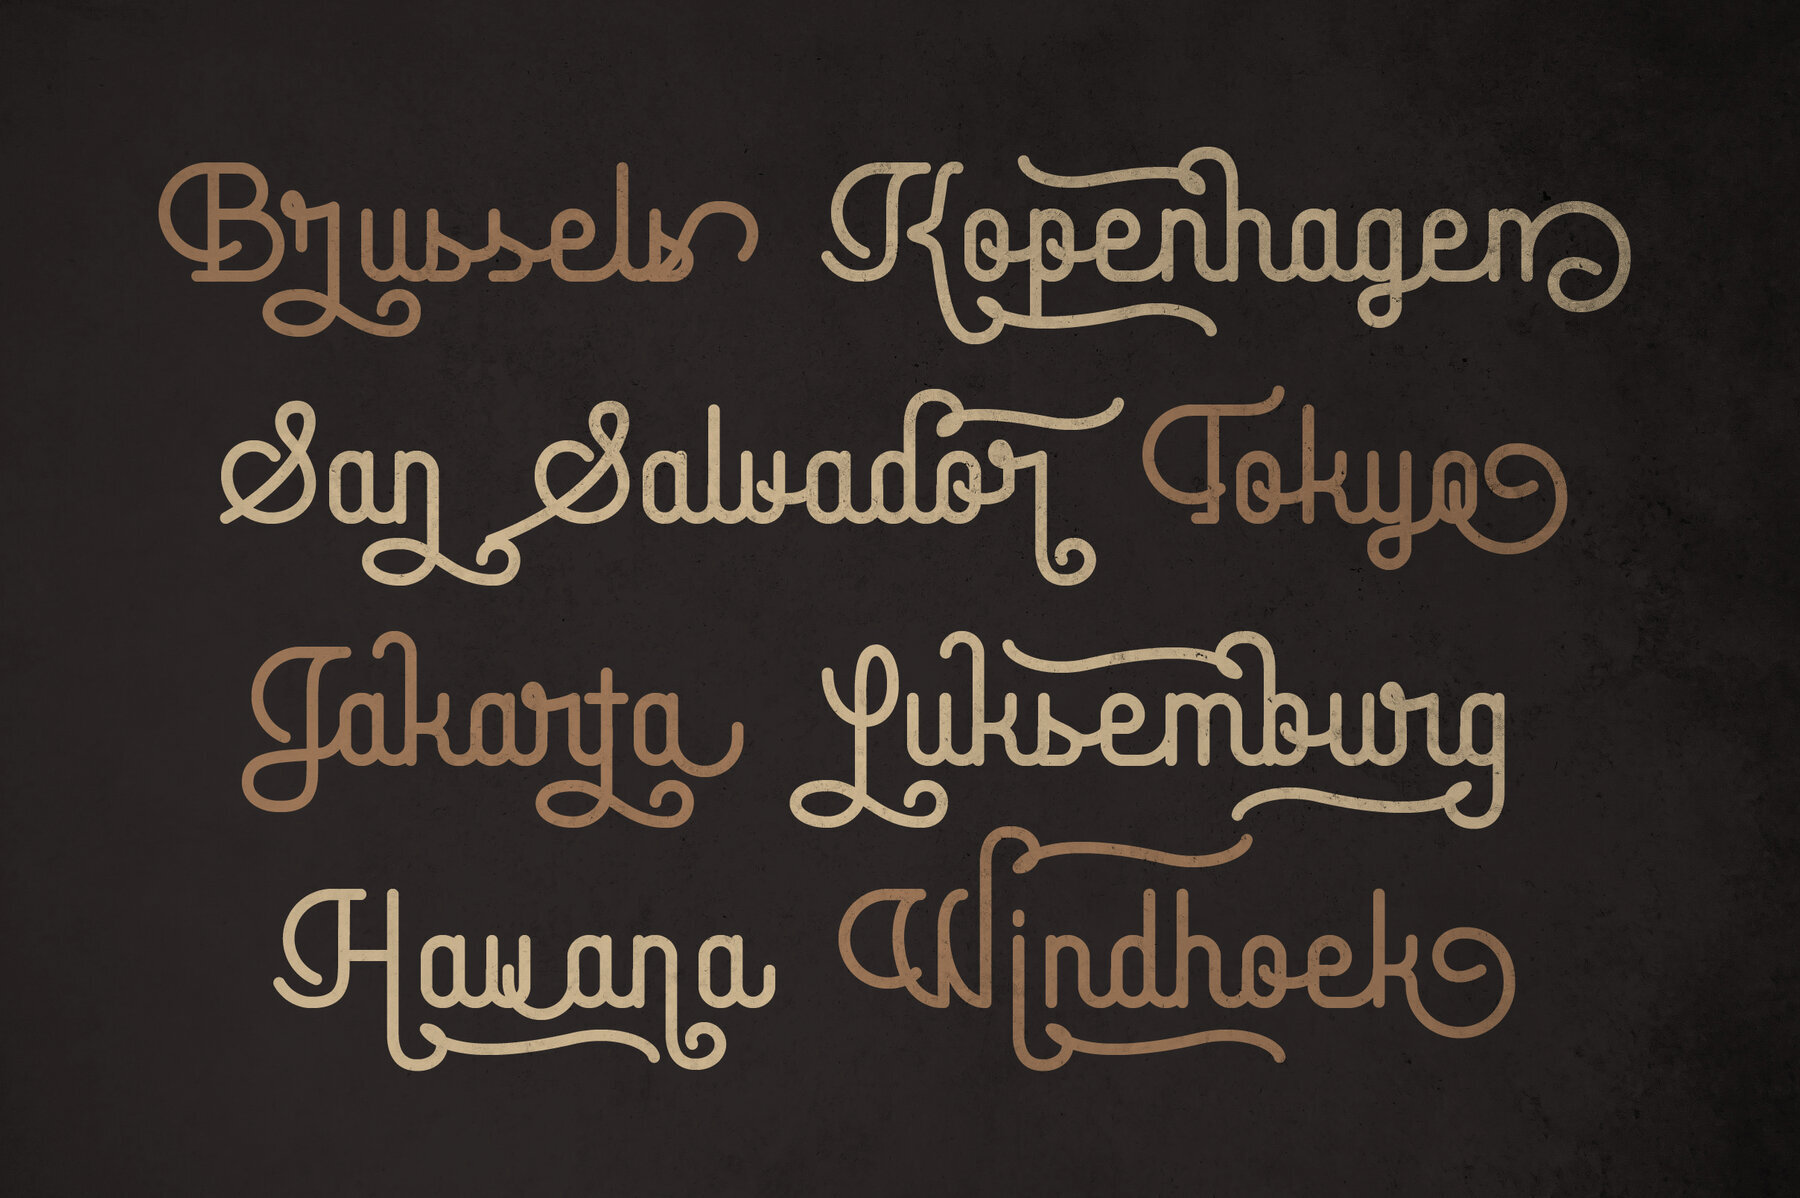 Brussels Kopenhagen
San Salvador Tokyo
Jakarta Luksemburg
Hawana Windhoek